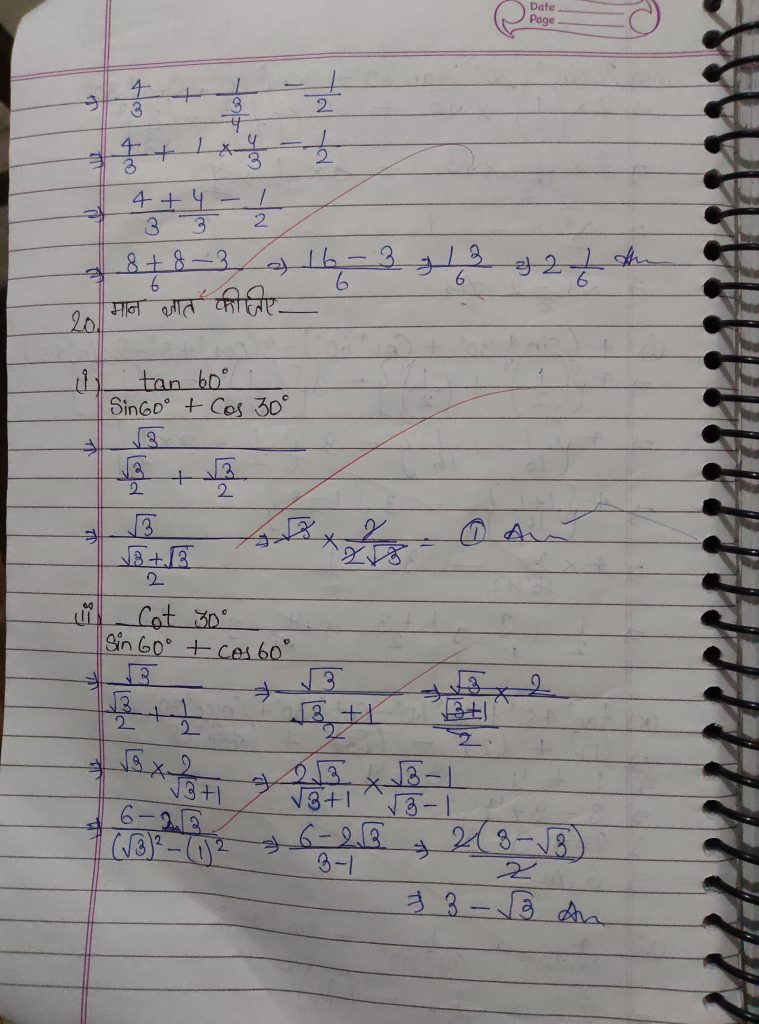 Date
Page
⇒ 4/3 + 1/(3/4) - 1/2
⇒ 4/3 + 1 × 4/3 - 1/2
⇒ 4/3 + 4/3 - 1/2
⇒ (8+8-3)/6 ⇒ (16-3)/6 ⇒ 13/6 ⇒ 2 1/6 Ans
20. मान ज्ञात कीजिए—
(i) tan 60° / (Sin60° + Cos 30°)
⇒ √3 / (√3/2 + √3/2)
⇒ √3 / ((√3+√3)/2) ⇒ √3 × 2/(2√3) = ① Ans
(ii) Cot 30° / (Sin 60° + cos 60°)
⇒ √3 / (√3/2 + 1/2) ⇒ √3 / ((√3+1)/2) ⇒ √3/((√3+1)/2) × 2
⇒ √3 × 2/(√3+1) ⇒ 2√3/(√3+1) × (√3-1)/(√3-1)
⇒ (6-2√3)/((√3)²-(1)²) ⇒ (6-2√3)/(3-1) ⇒ 2(3-√3)/2
⇒ 3-√3 Ans